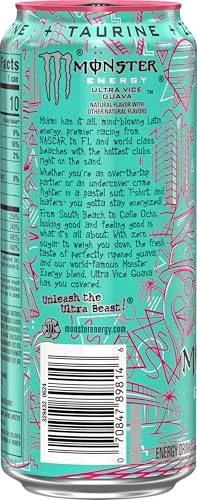 E + TAURINE + G
Facts
1 can
10
MONSTER
ENERGY
ULTRA VICE
GUAVA
NATURAL FLAVOR WITH
OTHER NATURAL FLAVORS
Miami has it all, mind-blowing Latin
energy, premier racing from
NASCAR, to F1, and world class
beaches with the hottest clubs
right on the sand.
Whether you're an over-the-top
partier or an undercover crime
fighter in a pastel suit, T-shirt, and
loafers- you gotta stay energized!
From South Beach to Calle Ocho,
looking good and feeling good is
what it's all about. With zero
sugar to weigh you down, the fresh
taste of perfectly ripened guava,
and our world-famous Monster
Energy blend, Ultra Vice Guava
has you covered.
Unleash the
Ultra Beast!®
monsterenergy.com
0 70847 89814 6
328432 0624
M
ENERGY DR